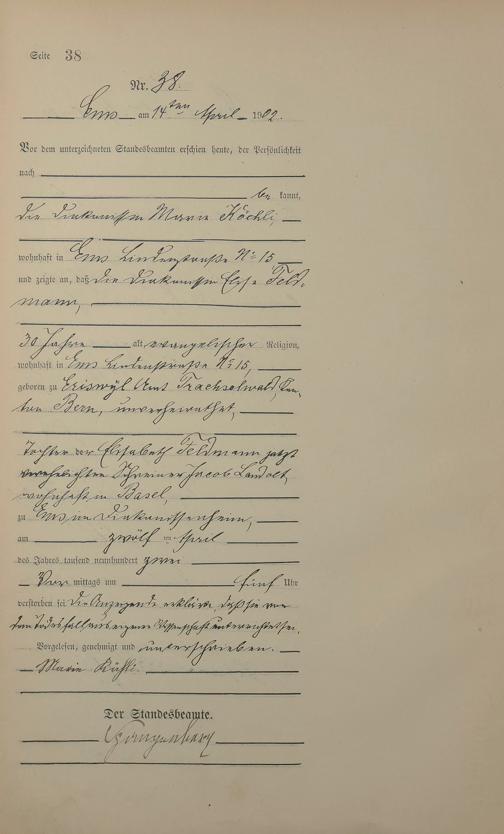 Seite 38
Nr. 38.
Ems am 14ten April 1902.
Vor dem unterzeichneten Standesbeamten erschien heute, der Persönlichkeit
nach
be kannt,
die Diakonissin Marie Köchli,
wohnhaft in Ems Lindenstraße No 15
und zeigte an, daß die Diakonissin Elise Feld-
mann,
30 Jahre alt, evangelischer Religion,
wohnhaft in Ems Lindenstraße No 15,
geboren zu Eriswyl Amt Trachselwald, Kan-
ton Bern, unverheirathet,
Tochter der Elisabeth Feldmann jetzt
verehelichten Schreiner Jacob Landolt,
wohnhaft in Basel,
zu Ems im Diakonissenheim,
am zwölf ten April
des Jahres tausend neunhundert zwei
Vor mittags um fünf Uhr
verstorben sei. Die Anzeigende erklärte, daß sie von
dem Todesfall aus eigener Wissenschaft unterrichtet sei.
Vorgelesen, genehmigt und unterschrieben.
Marie
Der Standesbeamte.